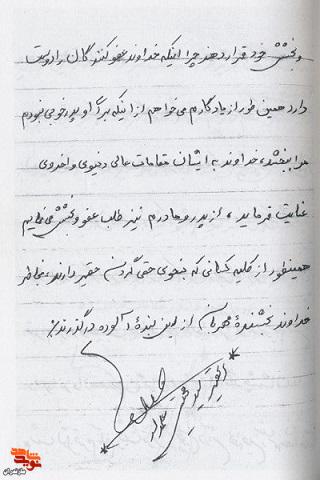 و بخشش خود قرار دهند چرا اینکه خداوند عفو کنندگان را دوست
دارد همین طور از یادگارم می‌خواهم از اینکه برگ او پدر خوبی نبودم
مرا ببخشد، خداوند به ایشان مقامات عالی دنیوی و اخروی
عنایت فرماید، از پدر و مادرم نیز طلب عفو و بخشش می‌نمایم
همینطور از کلیه کسانی که بنحوی حقی گردن حقیر دارند، بخاطر
خداوند بخشندهٔ مهربان از این بندهٔ آلوده درگذرند.
الحقیر
نوید شاهد
مازندران